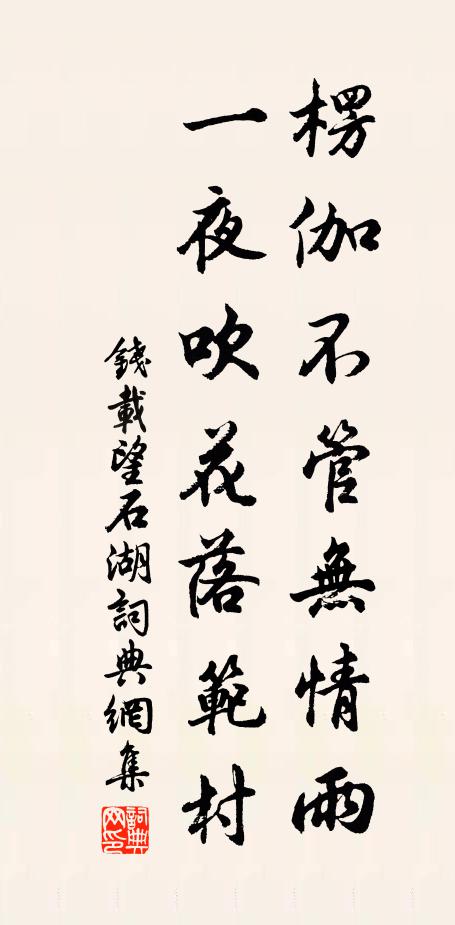 楞伽不管無情雨
一夜吹花落範村
錢載望石湖詞典網集
詞典網印